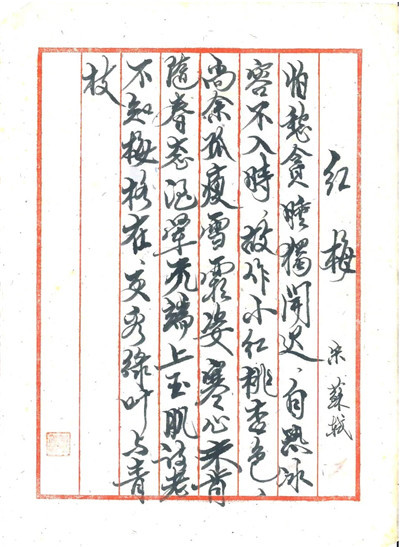 红梅 宋 蘇轼
怕愁貪睡獨開迟、自恐冰
容不入時、故作小红桃杏色、
尚余孤瘦雪霜姿 寒心未肯
隨春态 酒暈无端上玉肌 诗老
不知梅格在、更看绿叶与青
枝